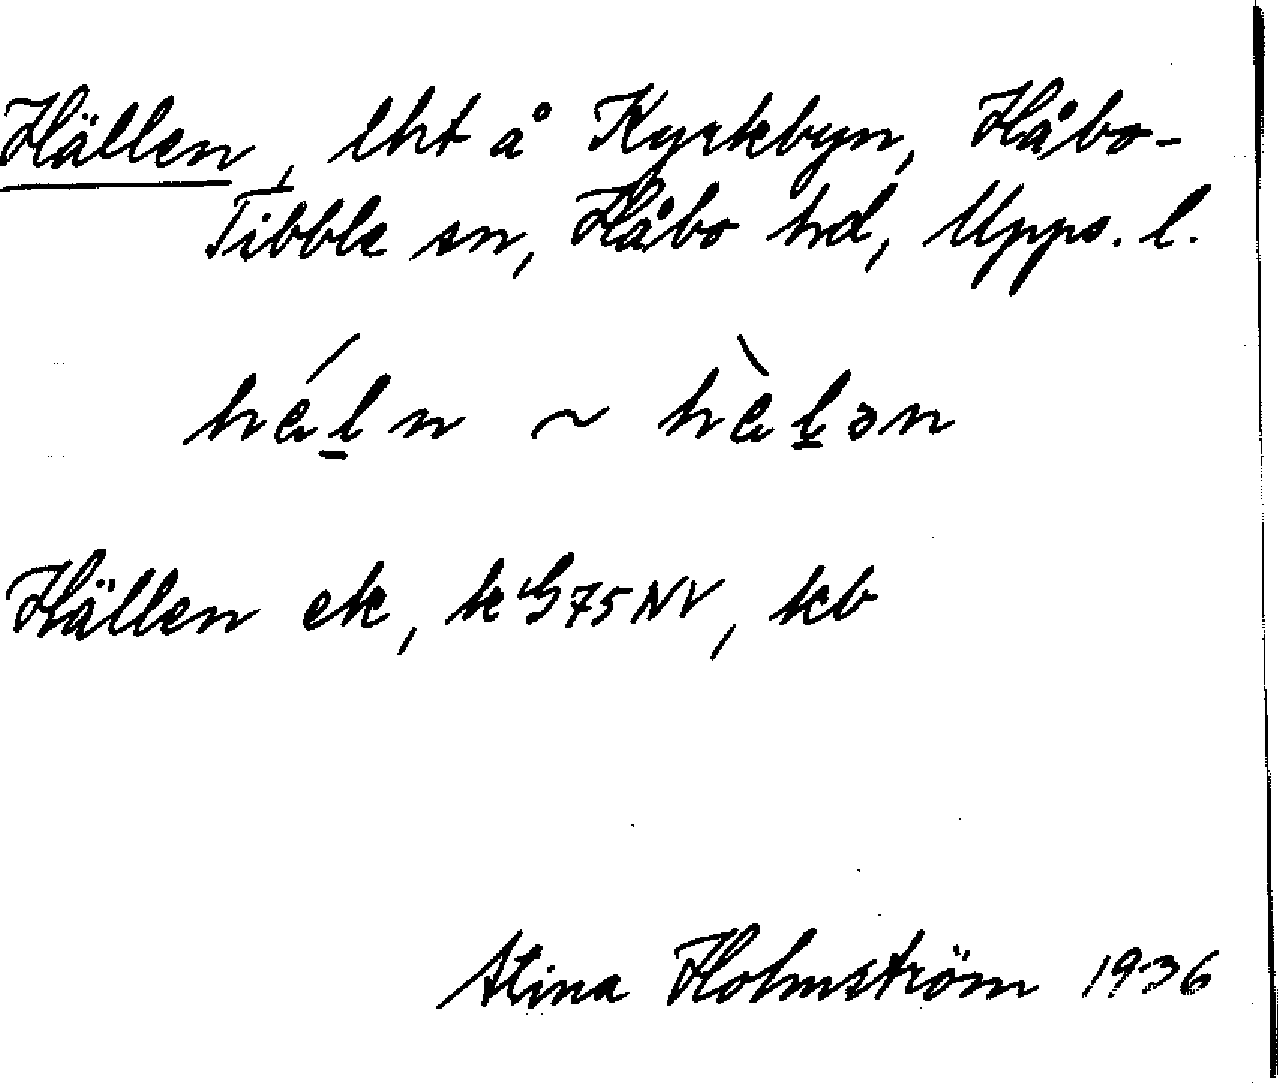 Hällen, lht å Kyrkbyn, Håbo-
Tibble sn, Håbo hd, Upps. l.
hǽl̠n ~ hæ̀l̠ən
Hällen ek, k G 75 NV, kb
Stina Holmström 1936